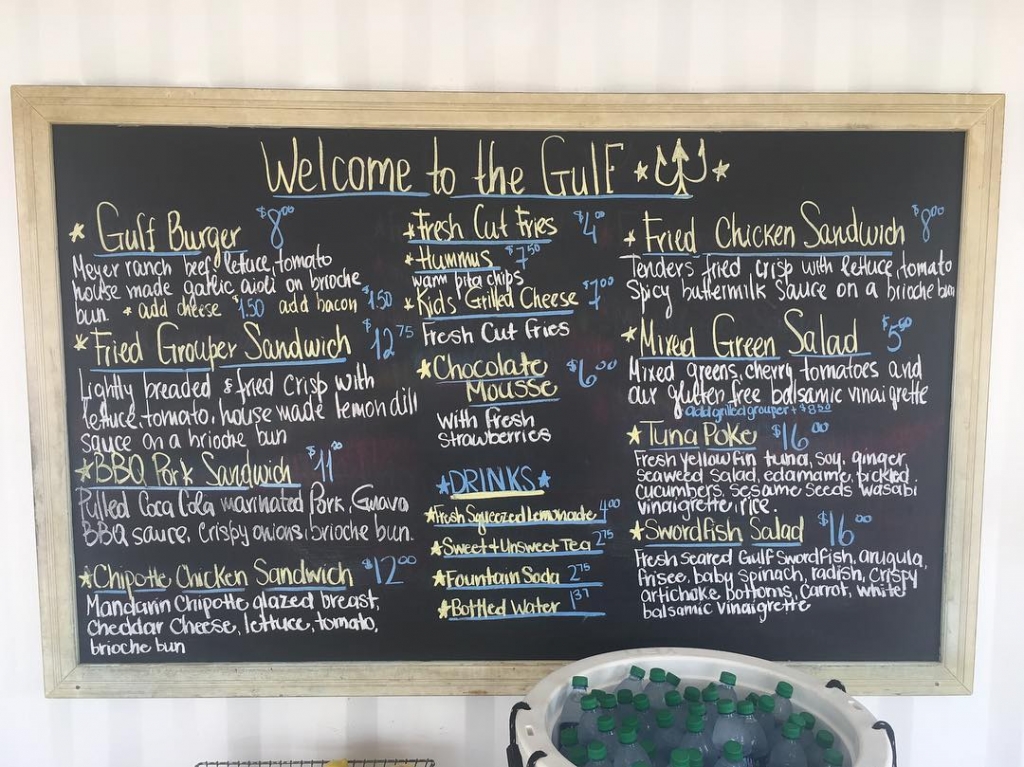 Welcome to the Gulf
Gulf Burger $8.00
Meyer ranch beef, lettuce, tomato
house made garlic aioli on brioche
bun. * add cheese $1.50 add bacon $1.50
Fried Grouper Sandwich $12.75
Lightly breaded & fried crisp with
lettuce, tomato, house made lemon dill
sauce on a brioche bun
BBQ Pork Sandwich $11.00
Pulled Coca Cola marinated Pork, Guava
BBQ sauce, Crispy onions, brioche bun.
Chipotle Chicken Sandwich $12.00
Mandarin Chipotle glazed breast,
cheddar cheese, lettuce, tomato,
brioche bun
Fresh Cut Fries $4.00
Hummus $7.50
warm pita chips
Kids' Grilled Cheese $7.00
Fresh Cut Fries
Chocolate $6.00
Mousse
with fresh
strawberries
DRINKS
Fresh Squeezed Lemonade 4.00
Sweet + Unsweet Tea 2.75
Fountain Soda 2.75
Bottled Water 1.37
Fried Chicken Sandwich $8.00
Tenders fried crisp with lettuce, tomato
Spicy buttermilk sauce on a brioche bun
Mixed Green Salad $5.50
Mixed greens, cherry tomatoes and
our gluten free balsamic vinaigrette
add grilled grouper + $8.50
Tuna Poke $16.00
Fresh yellowfin tuna, soy, ginger,
seaweed salad, edamame, pickled
cucumbers, sesame seeds wasabi
vinaigrette, rice.
Swordfish Salad $16.00
Fresh seared Gulf Swordfish, arugula,
frisee, baby spinach, radish, crispy
artichoke bottoms, carrot, white
balsamic vinaigrette